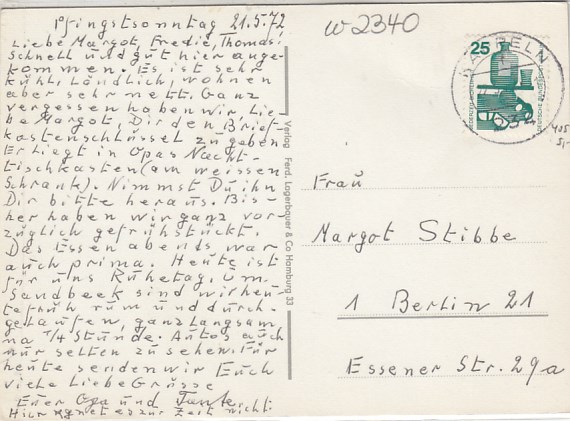 Pfingstsonntag 21.5.72
Liebe Margot, Fredie, Thomas!
Schnell und gut hier ange-
kommen. Es ist sehr
kühl. Ländlich, wohnen
aber sehr nett. Ganz
vergessen haben wir, Lie-
be Margot, Dir den Brief-
kastenschlüssel zu geben
Er liegt in Opas Nacht-
tischkasten (am weissen
Schrank). Nimmst Du ihn
Dir bitte heraus. Bis-
her haben wir ganz vor-
züglich gefrühstückt.
Das Essen abends war
auch prima. Heute ist
für uns Ruhetag. Um
Sandbeek sind wir heu-
te früh rum und durch-
gelaufen, ganz langsam
na 3/4 Stunde. Autos auch
nur selten zu sehen. Für
heute senden wir Euch
viele liebe Grüsse
Euer Opa und Tante.
Hier regnet es zur Zeit nicht.
Verlag Ferd. Lagerbauer & Co Hamburg 33
w 2340
25
KAPPELN
405
5,-
Frau
Margot Stibbe
1 Berlin 21
Essener Str. 29a